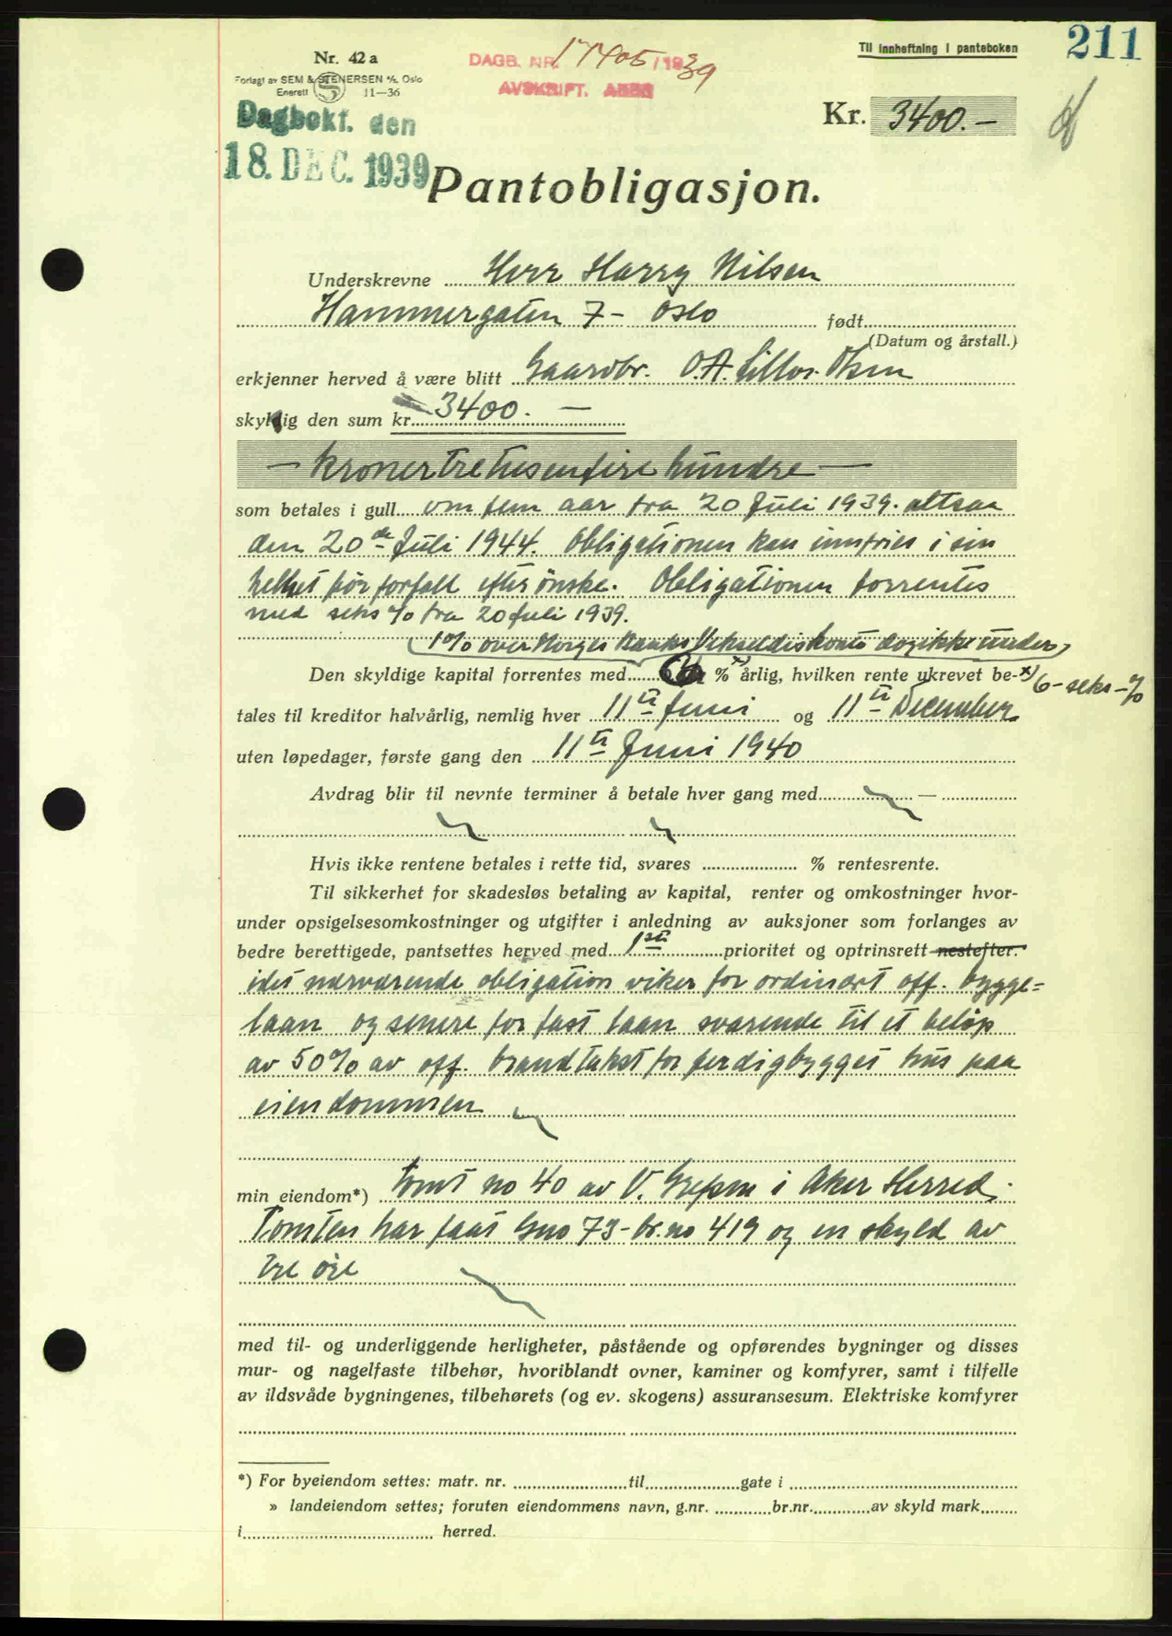 Til innheftning i panteboken
211
Nr. 42 a
Forlagt av SEM & STENERSEN A/S, Oslo
Enerett 11—36
DAGB. NR. 17405/1939
AVSKRIFT.
Dagbokf. den
18. DEC. 1939
Kr. 3400.—
Pantobligasjon.
Underskrevne Herr Harry Nilsen
Hammergaten 7 - Oslo født
(Datum og årstall.)
erkjenner herved å være blitt Gaardbr. O.A. Lillos-Olsen
skyldig den sum kr. 3400. —
— kronertretusenfirehundre —
som betales i gull om fem aar fra 20 Juli 1939. altsaa
den 20de Juli 1944. Obligationen kan innfries i sin
helhet før forfall efter ønske. Obligationen forrentes
med seks % fra 20 Juli 1939.
(1% over Norges Banks Vekseldiskonto dog ikke under
Den skyldige kapital forrentes med % x) årlig, hvilken rente ukrevet be- x) 6 - seks - %
tales til kreditor halvårlig, nemlig hver 11te Juni og 11te December
uten løpedager, første gang den 11te Juni 1940
Avdrag blir til nevnte terminer å betale hver gang med —
Hvis ikke rentene betales i rette tid, svares % rentesrente.
Til sikkerhet for skadesløs betaling av kapital, renter og omkostninger hvor-
under opsigelsesomkostninger og utgifter i anledning av auksjoner som forlanges av
bedre berettigede, pantsettes herved med 1ste prioritet og optrinsrett nestefter:
idet nærværende obligation viker for ordinært off. bygge=
laan og senere for fast laan svarende til et beløp
av 50% av off. brandtakst for ferdigbygget hus paa
eiendommen
min eiendom*) Tomt no 40 av V. Grefsen i Aker Herred.
Tomten har faat Gno 73 - br.no 419 og en skyld av
tre øre
med til- og underliggende herligheter, påstående og opførendes bygninger og disses
mur- og nagelfaste tilbehør, hvoriblandt ovner, kaminer og komfyrer, samt i tilfelle
av ildsvåde bygningenes, tilbehørets (og ev. skogens) assuransesum. Elektriske komfyrer
*) For byeiendom settes: matr. nr. til gate i
» landeiendom settes; foruten eiendommens navn, g.nr. br.nr. av skyld mark
i herred.